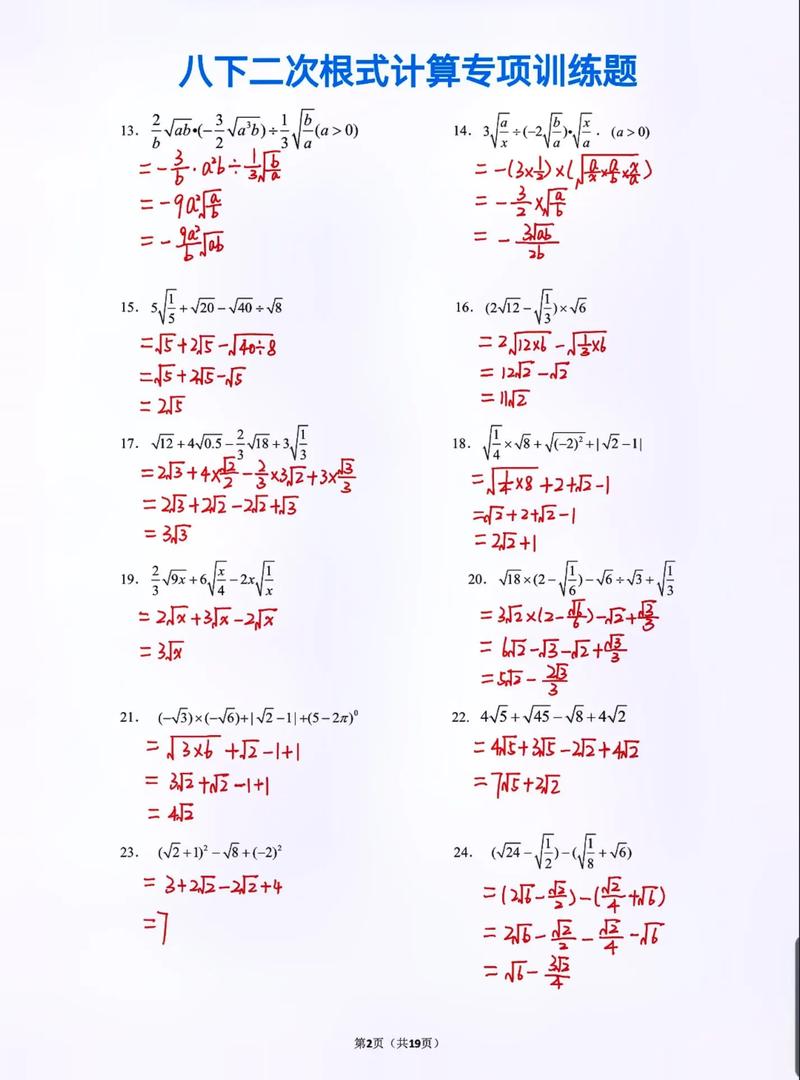 八下二次根式计算专项训练题
13. 2/b √ab•(−3/2 √a³b)÷1/3 √(b/a) (a>0)
=−3/b·a²b÷1/3√(b/a)
=−9a²√(a/b)
=−9a²/b √ab
14. 3√(a/x)÷(−2√(b/a))•√(x/a). (a>0)
=−(3×1/2)×(√(a/x×a/b×x/a))
=−3/2×√(a/b)
=−3√ab/2b
15. 5√(1/5)+√20−√40÷√8
=√5+2√5−√(40÷8)
=√5+2√5−√5
=2√5
16. (2√12−√(1/3))×√6
=2√(12×6)−√(1/3×6)
=12√2−√2
=11√2
17. √12+4√0.5−2/3√18+3√(1/3)
=2√3+4×√2/2−2/3×3√2+3×√3/3
=2√3+2√2−2√2+√3
=3√3
18. √(1/4)×√8+√((−2)²)+|√2−1|
=√(1/4×8)+2+√2−1
=√2+2+√2−1
=2√2+1
19. 2/3√9x+6√(x/4)−2x√(1/x)
=2√x+3√x−2√x
=3√x
20. √18×(2−√(1/6))−√6÷√3+√(1/3)
=3√2×(2−√6/6)−√2+√3/3
=6√2−√3−√2+√3/3
=5√2−2√3/3
21. (−√3)×(−√6)+|√2−1|+(5−2π)⁰
=√(3×6)+√2−1+1
=3√2+√2−1+1
=4√2
22. 4√5+√45−√8+4√2
=4√5+3√5−2√2+4√2
=7√5+2√2
23. (√2+1)²−√8+(−2)²
=3+2√2−2√2+4
=7
24. (√24−√(1/2))−(√(1/8)+√6)
=(2√6−√2/2)−(√2/4+√6)
=2√6−√2/2−√2/4−√6
=√6−3√2/4
第2页（共19页）